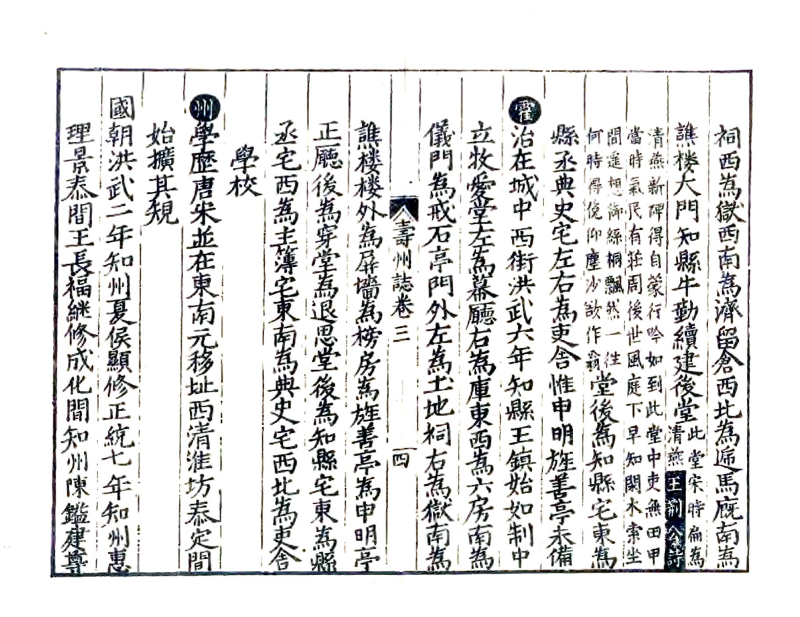 祠西為獄西南為濟留倉西北為遞馬廐南為
譙樓大門知縣牛勤續建後堂此堂宋時扁為清燕王荆公詩
清燕新碑得自蒙行吟如到此堂中吏無田甲
當時氣民有莊周後世風庭下早知閑木索坐
間遥想御絲桐飄然一往
何時得俛仰塵沙欲作翁堂後為知縣宅東為
縣丞典史宅左右為吏舍惟申明旌善亭未備
霍治在城中西街洪武六年知縣王鎮始如制中
立牧愛堂左為幕廳右為庫東西為六房南為
儀門為戒石亭門外左為土地祠右為獄南為
壽州誌卷三
四
譙樓樓外為屏墻為榜房為旌善亭為申明亭
正廳後為穿堂為退思堂後為知縣宅東為縣
丞宅西為主簿宅東南為典史宅西北為吏舍
學校
州學歷唐宋並在東南元移址西清淮坊泰定間
始擴其規
國朝洪武二年知州夏侯顯修正統七年知州惠
理景泰間王長福繼修成化間知州陳鑑建尊